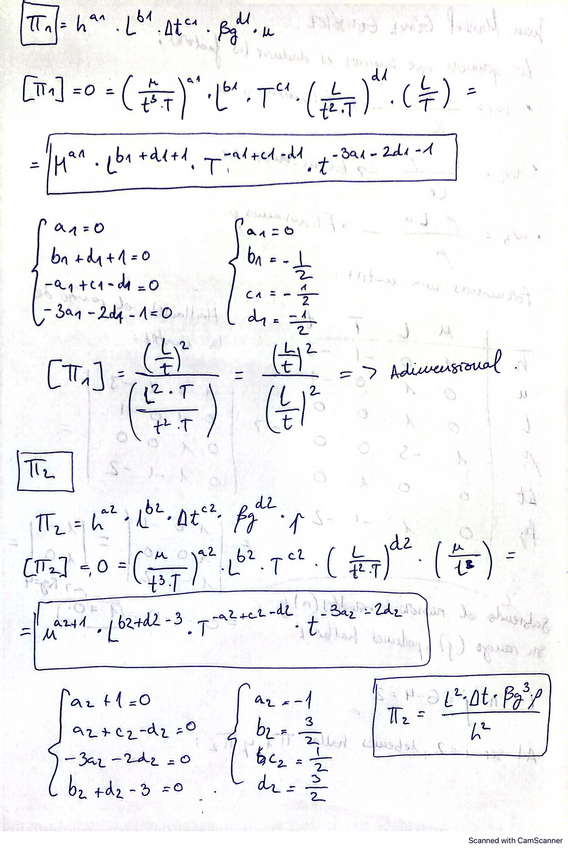 Π₁ = h^a1 · L^b1 · Δt^c1 · βg^d1 · μ
[Π₁] = 0 = (M/t³·T)^a1 · L^b1 · T^c1 · (L/t²·T)^d1 · (L/T) =
= M^a1 · L^b1+d1+1 · T^-a1+c1-d1 · t^-3a1-2d1-1
{ a1 = 0 { a1 = 0
b1 + d1 + 1 = 0 b1 = -1/2
-a1 + c1 - d1 = 0 c1 = -1/2
-3a1 - 2d1 - 1 = 0 d1 = -1/2
[Π₁] = (L/t)² / (L²·T / t²·T) = (L/t)² / (L/t)² => Adimensional.
Π₂
Π₂ = h^a2 · L^b2 · Δt^c2 · βg^d2 · ρ
[Π₂] = 0 = (M/t³·T)^a2 · L^b2 · T^c2 · (L/t²·T)^d2 · (M/t³) =
= M^a2+1 · L^b2+d2-3 · T^-a2+c2-d2 · t^-3a2-2d2
{ a2 + 1 = 0 { a2 = -1
a2 + c2 - d2 = 0 b2 = 3/2
-3a2 - 2d2 = 0 c2 = 1/2
b2 + d2 - 3 = 0 d2 = 3/2
Π₂ = L²·Δt·βg³·ρ / h²
Scanned with CamScanner